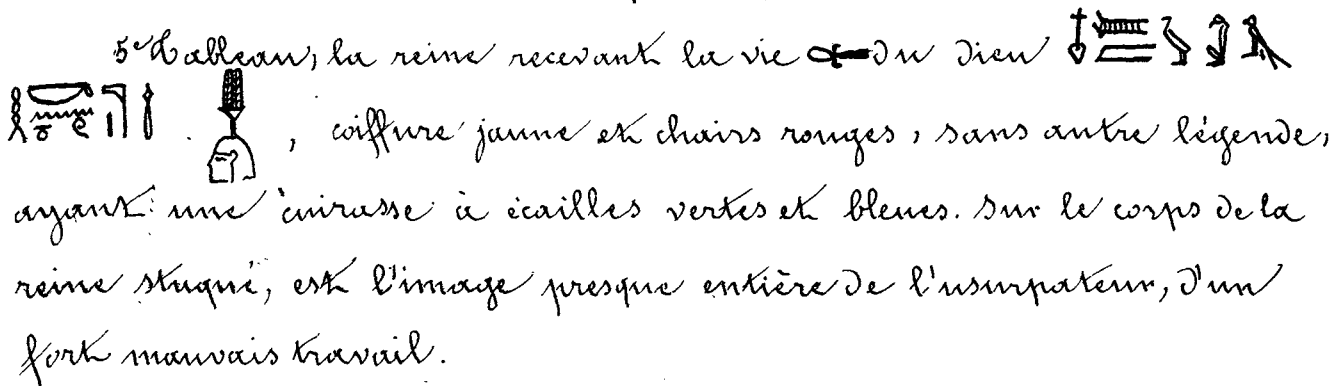 5e Tableau, la reine recevant la vie du dieu
, coiffure jaune et chairs rouges, sans autre légende,
ayant une cuirasse à écailles vertes et bleues. Sur le corps de la
reine stuqué, est l'image presque entière de l'usurpateur, d'un
fort mauvais travail.